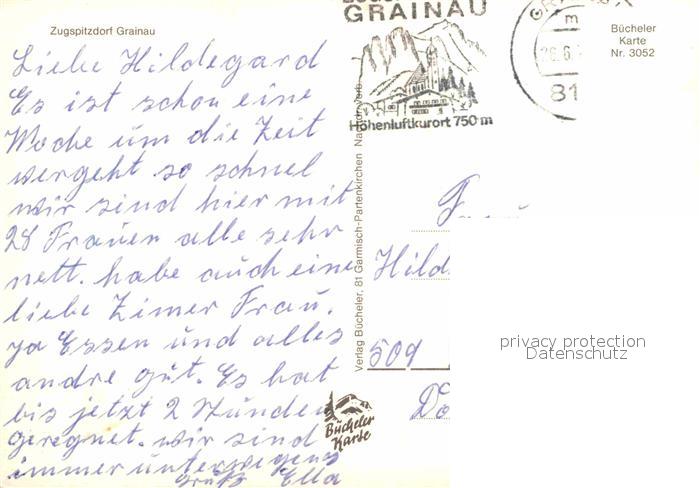 Zugspitzdorf Grainau
Liebe Hildegard
Es ist schon eine
Woche um die Zeit
vergeht so schnel
wir sind hier mit
28 Frauen alle sehr
nett. habe auch eine
liebe Zimer Frau.
ja Essen und alles
andre gut. Es hat
bis jetzt 2 Stunden
geregnet. wir sind
immer unterwegens
Gruß Ella
GRAINAU
Höhenluftkurort 750 m
81
Bücheler
Karte
Nr. 3052
Verlag Bücheler, 81 Garmisch-Partenkirchen
Frau
Hild
509
Bücheler
Karte
privacy protection
Datenschutz